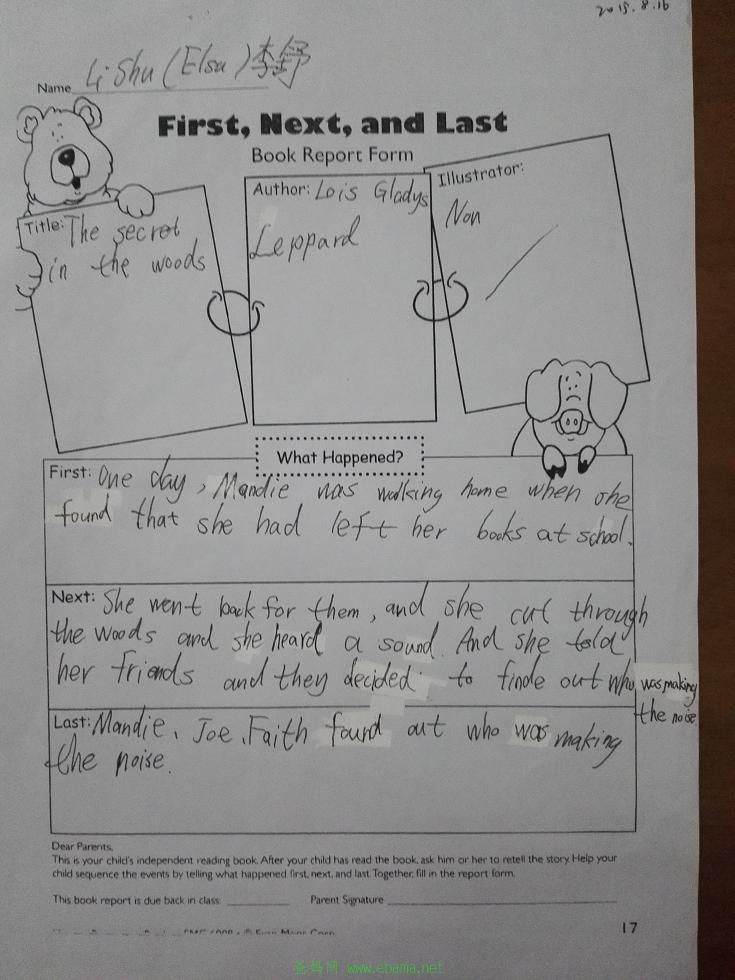 2015.8.16
Name Li Shu (Elsa) 李舒
First, Next, and Last
Book Report Form
Title: The secret
in the woods
Author: Lois Gladys
Leppard
Illustrator:
Non
What Happened?
First: One day, Mandie was walking home when she
found that she had left her books at school.
Next: She went back for them, and she cut through
the woods and she heard a sound. And she told
her friends and they decided to finde out who was making
the noise
Last: Mandie、Joe、Faith found out who was making
the noise.
Dear Parents,
This is your child's independent reading book. After your child has read the book, ask him or her to retell the story. Help your
child sequence the events by telling what happened first, next, and last. Together, fill in the report form.
This book report is due back in class Parent Signature
17
爸妈网 www.ebama.net